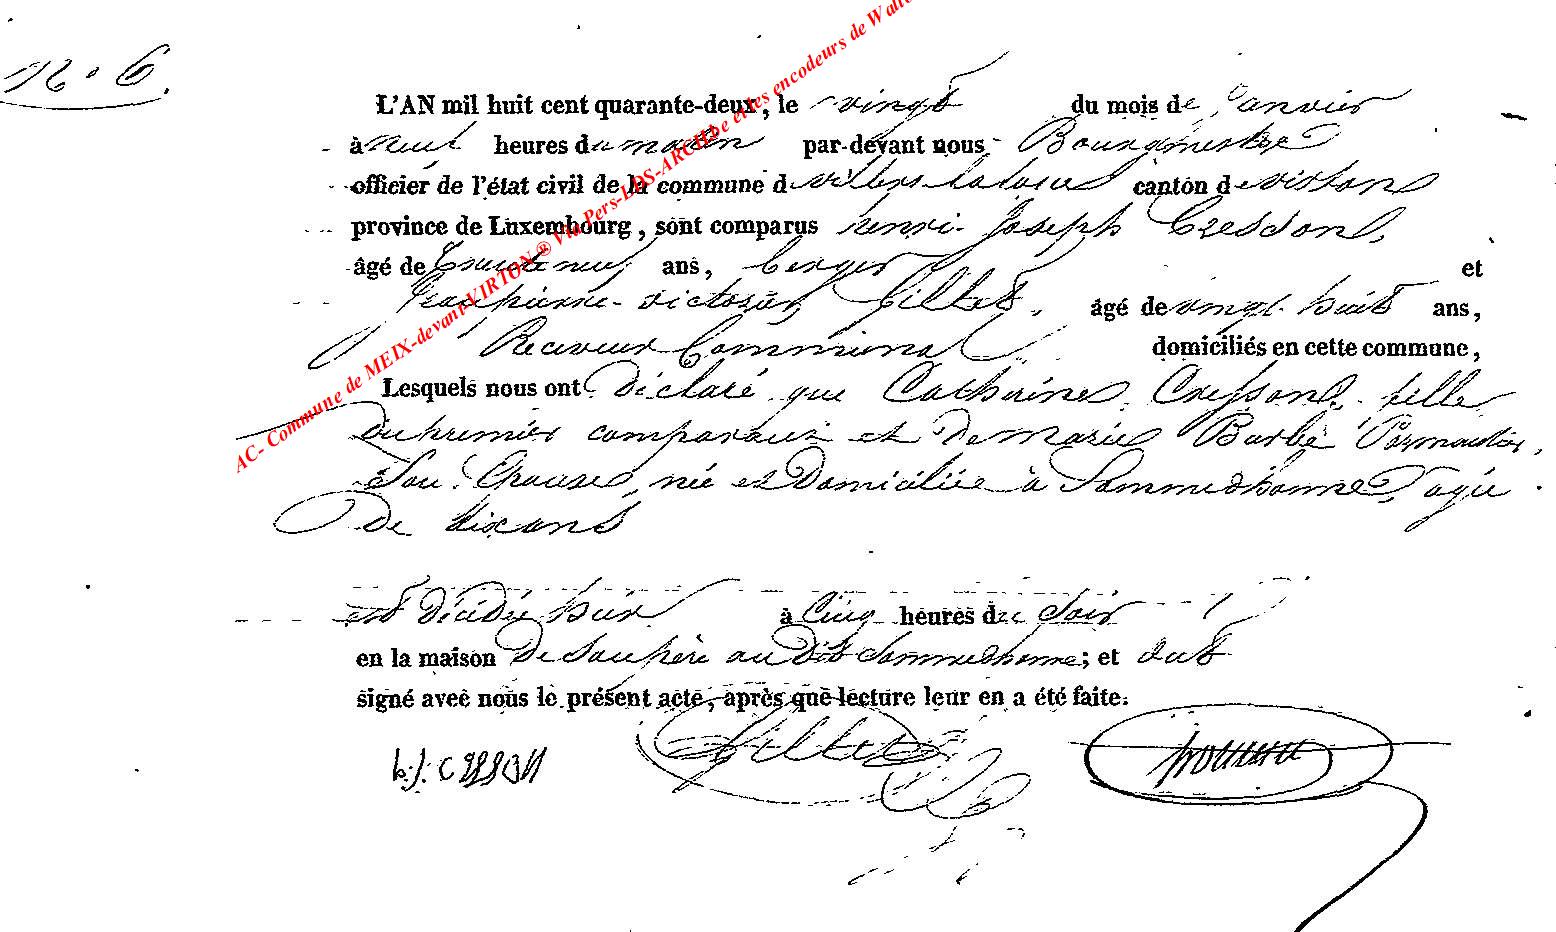 N° 6.
AC- Commune de MEIX-devant-VIRTON ® Via Pers-LDS-ARCHbe et les encodeurs de
L'AN mil huit cent quarante-deux, le vingt du mois de Janvier
à neuf heures du matin par-devant nous Bourgmestre
officier de l'état civil de la commune de villers-laloue canton de virton
province de Luxembourg, sont comparus henri Joseph Cresson,
âgé de trente neuf ans, berger et
Jean pierre victor Gillet, âgé de vingt huit ans,
Receveur Communal domiciliés en cette commune,
Lesquels nous ont déclaré que Catherine Cresson, fille
du premier comparant et de marie Barbe Parmentier,
son épouse, née et domiciliée à Sommethonne, agée
de dix ans
est décédée hier à cinq heures du soir
en la maison de son père au dit Sommethonne; et ont
signé avec nous le présent acte, après que lecture leur en a été faite.
h.j. cresson Gillet